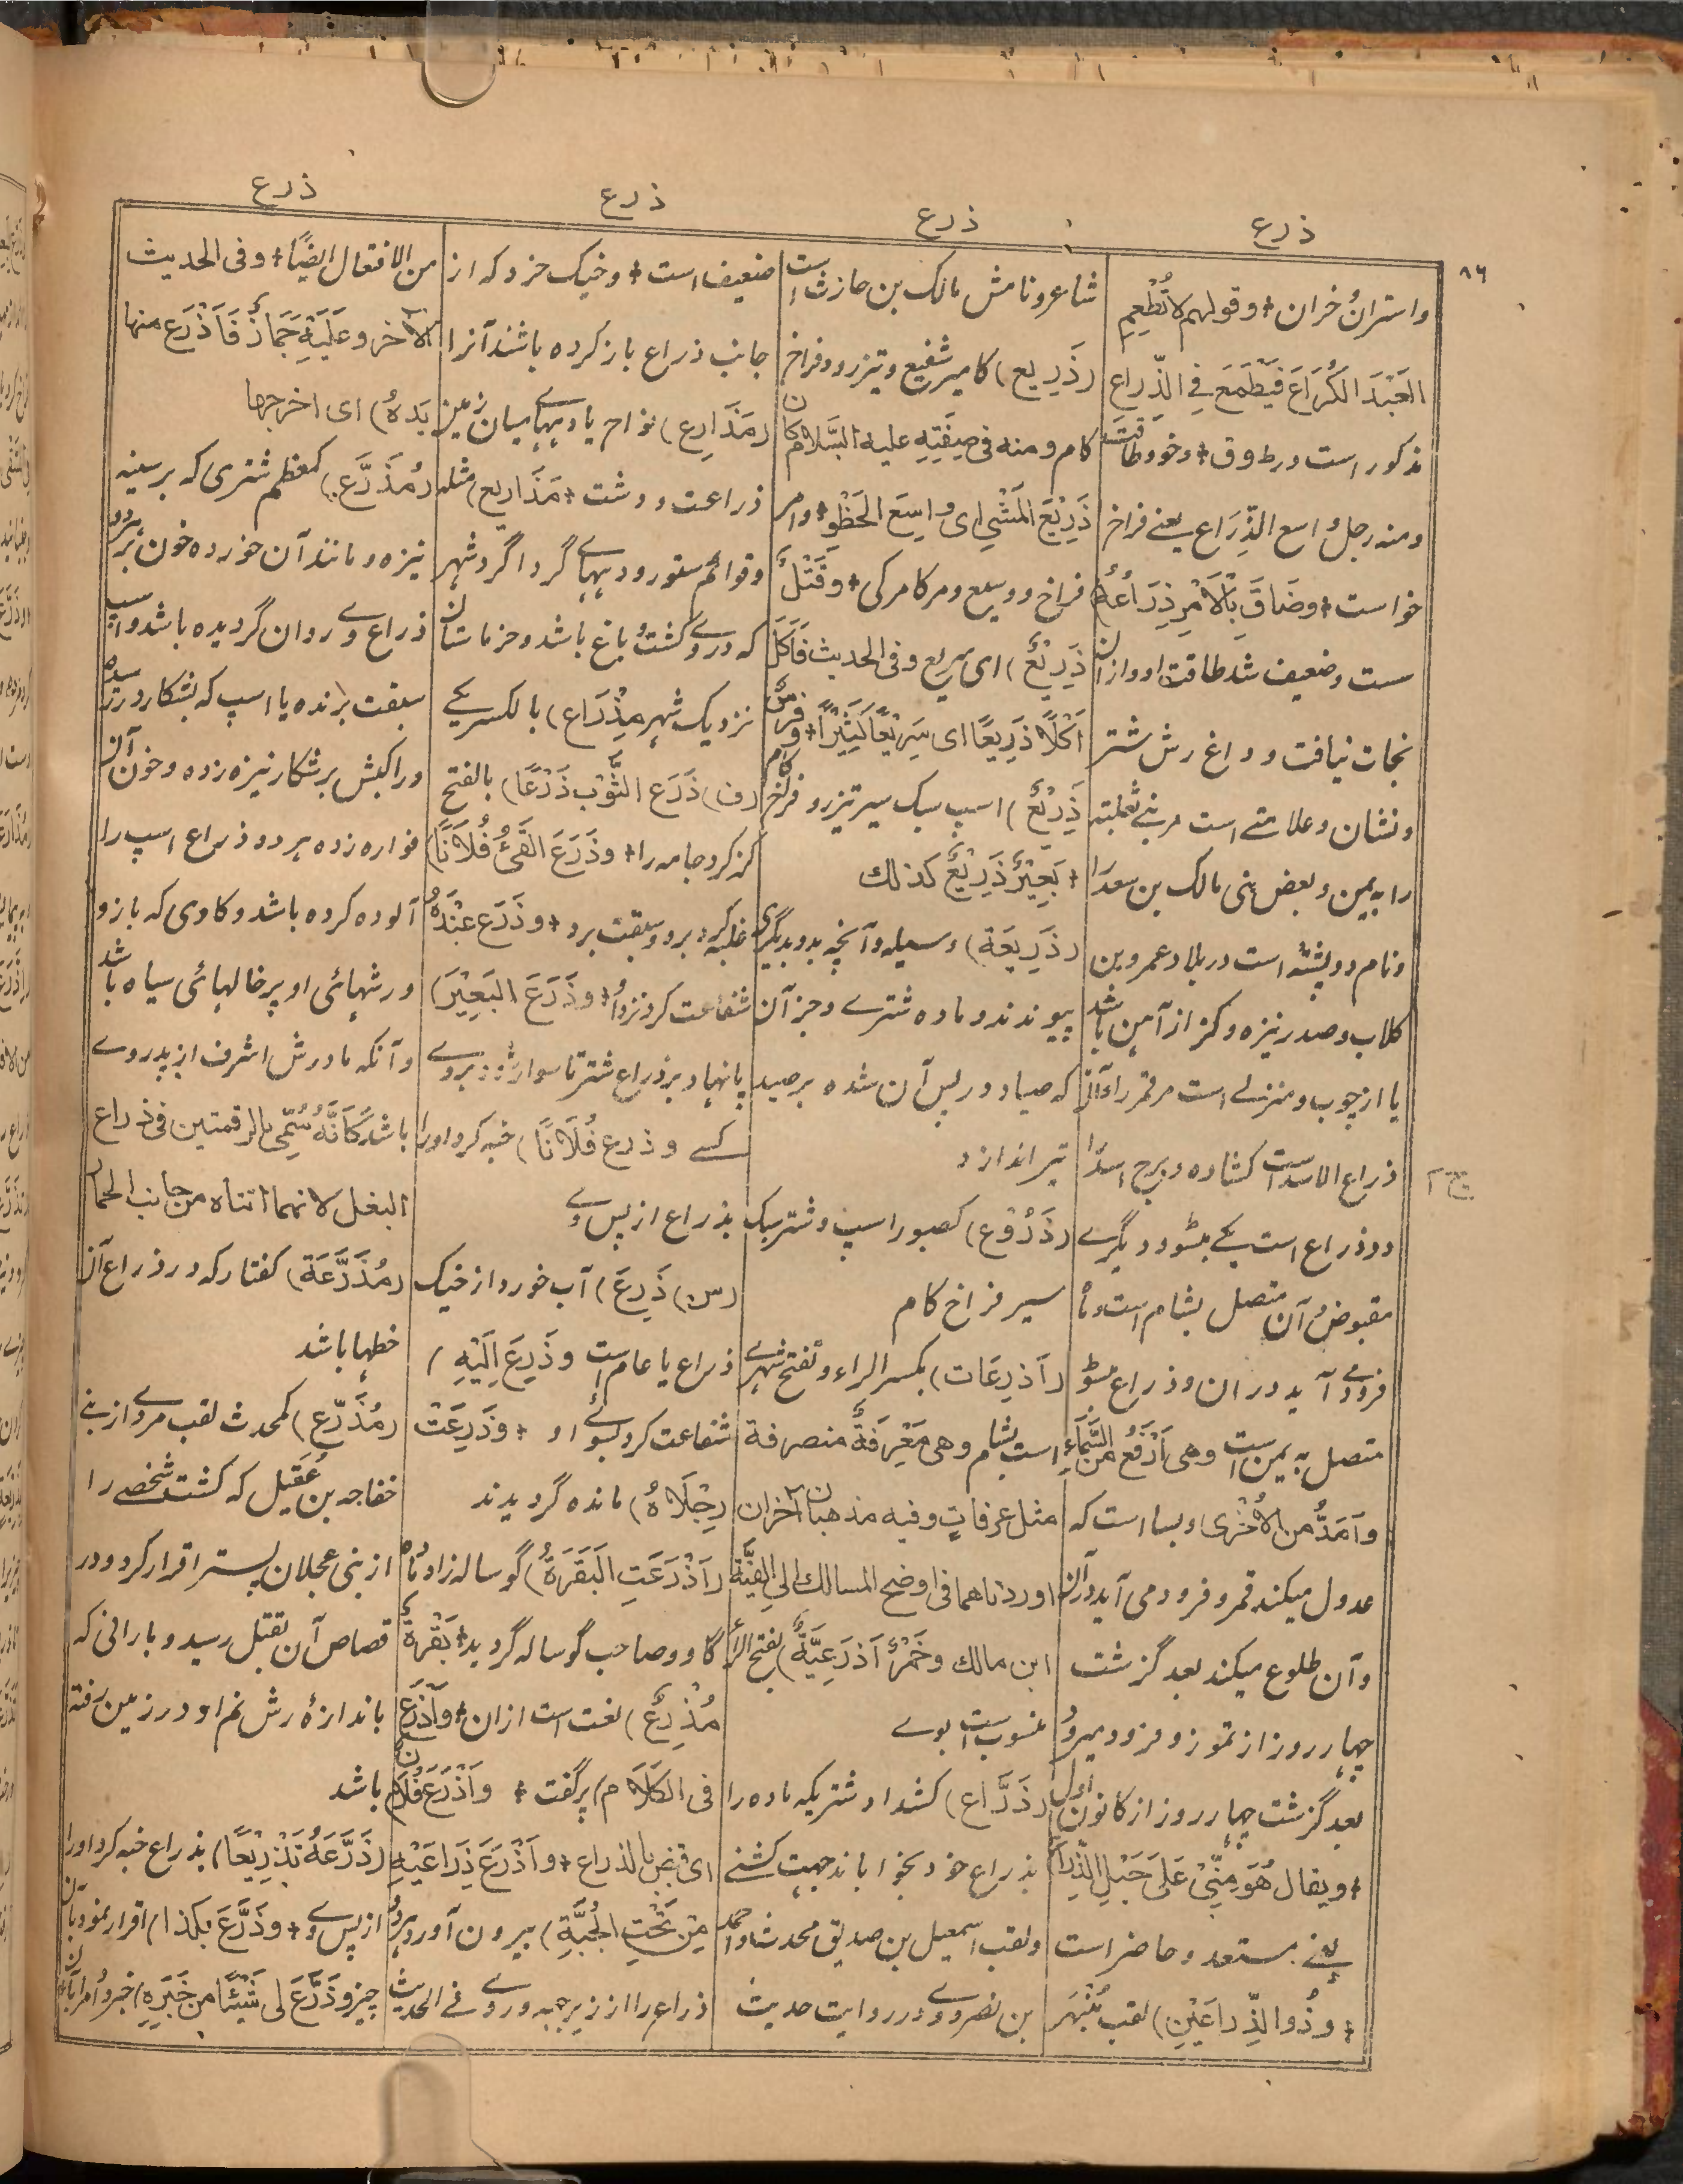 ذرع
ذرع
ذرع
ذرع
٨٦
واستران خران + وقولهم لا تُطْعِمِ
العَبْدَ الكُرَاعَ فَيَطْمَعَ فِي الذِّرَاع
مذکور است در ط وق + وخو وطاقت
ومنه رجل واسع الذِّرَاع یعنے فراخ
خواست + وضَاقَ بِالْاَمْرِ ذِرَاعُهُ)
سست وضعیف شد طاقت او و ازان
نجات نیافت و داغ رش شتر
ونشان و علامتے است مر بنے ثعلبه
را به یمن و بعض بنی مالک بن سعد را
ونام دو پشته است در بلاد عمرو بن
کلاب و صدر نیزه و کز از آهن باشد
یا از چوب و منزلے است مر قمر را و آن
ذراع الاسد است کشاده و برج اسد را
دو ذراع است یکے مبسوط و دیگرے
مقبوض آن متصل بشام است و ماه
فرود مے آید دران و ذراع مبسوط
متصل به یمن است وهی اَرْفَعُ مِنَ السَّمَاءِ
واَمَدُّ من الاُخْرٰی و بسا است که
عدول میکند قمر و فرود می آید در آن
و آن طلوع میکند بعد گزشت
چهار روز از تموز و فرود میرود
بعد گزشت چهار روز از کانون اول
+ ویقال هُوَ مِنِّیْ عَلَی حَبْلِ الذِّرَاعِ
یعنے مستعد و حاضر است
+ وذُو الذِّراعَیْنِ) لقب مُنْبَهِر
شاعر و نامش مالک بن حارث است
(ذَرِیع) کامیر شفیع و تیز رو و فراخ
کام و منه فی صِفَتِهِ علیه السَّلام کان
ذَرِیْعَ المَشْیِ ای واسِعَ الخَطْوِ + وامر
فراخ و وسیع و مرگ مرگی + وقَتْلٌ
ذَرِیْعٌ) ای سریع و فی الحدیث فَاَکَلَ
اَکْلًا ذَرِیعًا ای سَرِیْعًا کَثِیْرًا + وفرسٌ
ذَرِیْعٌ) اسپ سبک سیر تیز رو فراخ کام
+ بَعِیْرٌ ذَرِیْعٌ کذلك
(ذَرِیعَة) وسیله و آنچه بدو بدیگری
پیوندند و ماده شترے و جز آن
که صیاد در پس آن شده بر صید
تیر اندازد
(ذَرُوْع) کصبور اسپ و شتر سبک
سیر فراخ کام
(اَذرِعَات) بکسر الراء و تفتح شهرے
است بشام وهی مَعْرِفَةٌ منصرفة
مثل عرفاتٍ وفیه مذهبان آخران
اوردناهما فی اوضح المسالك الی الفِیَّة
ابن مالك وخَمْرٌ اَذرَعِیَّةٌ) بفتح الراء
منسوب است بوے
(ذَرَّاع) کشداد شتریکه ماده را
بذراع خود بخواباند جهت کشنے
ولقب اسمعیل بن صدیق محدث و احمد
بن نصر و وے در روایت حدیث
ضعیف است + وخیک خرد که از
جانب ذراع باز کرده باشند آنرا
(مَذَارِع) نواح یا دیهاے میان زمین
زراعت و دشت + مَذَاریع) مثله
وقوائم ستور و دیهاے گرداگرد شهر
که درے کشت و باغ باشد و خرماستان
نزدیک شهر مِذْرَاع) بالکسر یکے
(ف) ذَرَعَ الثَّوْبَ ذَرْعًا) بالفتح
گز کرد جامه را + وذَرَعَ القَیْءُ فُلَانًا)
غلبه کرد برو و سبقت برد + وذَرَع عِنْدَهُ
شفاعت کرد نزد او + وذَرَعَ البَعِیْرَ)
پا نهاد بر ذراع شتر تا سوار شود بروے
کسے وذرع فُلَانًا) خبه کرد او را
بذراع از پس وے
(س) ذَرِعَ) آب خورد از خیک
ذراع یا عام است وذَرِعَ اِلَیْهِ )
شفاعت کرد بسوے او + وذَرِعَتْ
رِجْلَاهُ) مانده گردیدند
(اَذْرَعَتِ البَقَرَةُ) گوساله زاد ماده
گاو و صاحب گوساله گردید + بَقْرَةٌ
مُذْرِعٌ) نعت است ازان + واَذْرَعَ
فی الکَلَام) پر گفت + واَذْرَعَ فُلَان
ای قبض بالذراع + واَذْرَعَ ذِرَاعَیْهِ
مِنْ تَحْتِ الجُبَّةِ) بیرون آورد هر دو
ذراع را از زیر جبه و روے فی الحدیث
من الافتعال ایضًا + وفی الحدیث
الآخر وعَلَیْهِ جَمَّازَةٌ فَاَذْرَع منها
یَدهُ) ای اخرجها
(مُذَرَّع) کمعظم شتری که بر سینه
نیزه و مانند آن خورده خون بر هر دو
ذراع وے روان گردیده باشد و اسپ
سبقت برنده یا اسپ که بشکار در رسیده
وراکبش بر شکار نیزه زده و خون آن
فواره زده هر دو ذراع اسپ را
آلوده کرده باشد و گاوی که بازو
و رشهائی او پر خالهائی سیاه باشد
و آنکه مادرش اشرف از پدر وے
باشد کَاَنَّهُ سُمِّیَ بالرقمتین فی ذراع
البغل لانهما اتتاه من جانب الحمار
(مُذَرَّعَة) کفتار که در ذراع آن
خطها باشد
(مُذَرِّع) کمحدث لقب مردے از بنے
خفاجه بن عُقَیل که کشت شخصے را
از بنی عجلان پستر اقرار کرد و در
قصاص آن بقتل رسید و بارانی که
باندازهٔ رش نم او در زمین رفته
باشد
(ذَرَّعَهُ تَذْرِیْعًا) بذراع خبه کرد او را
از پس وے + وذَرَّعَ بکذا) اقرار نمود بآن
چیز وذَرَّعَ لی شَیْئًا من خَبَرِهِ) خبر داد مرا بآن
ج ۲